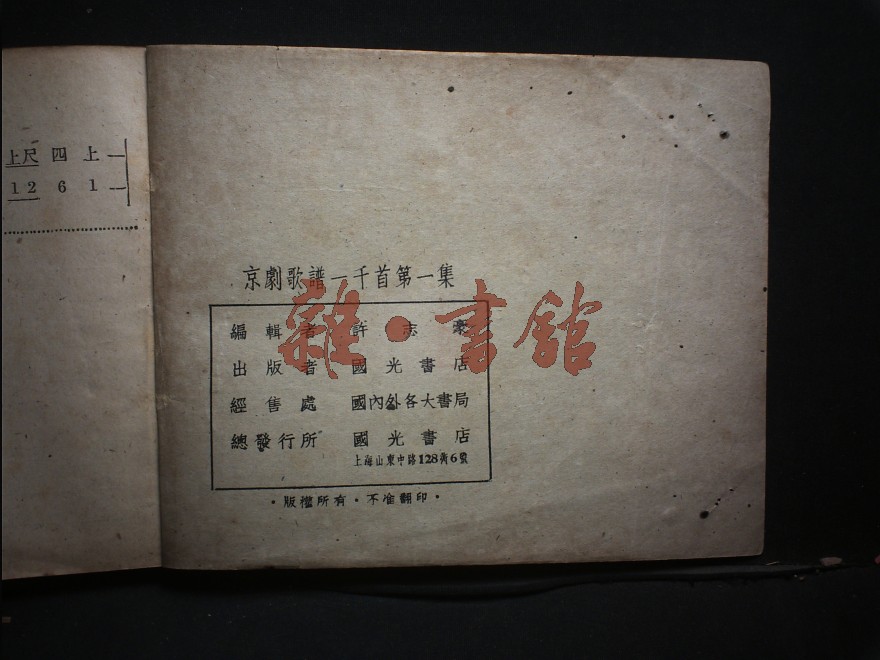 上尺 四 上 一
1 2 6 1 —
京劇歌譜一千首第一集
編輯者 許志豪
出版者 國光書店
經售處 國內外各大書局
總發行所 國光書店
上海山東中路128衖6號
·版權所有·不准翻印·
雜·書館